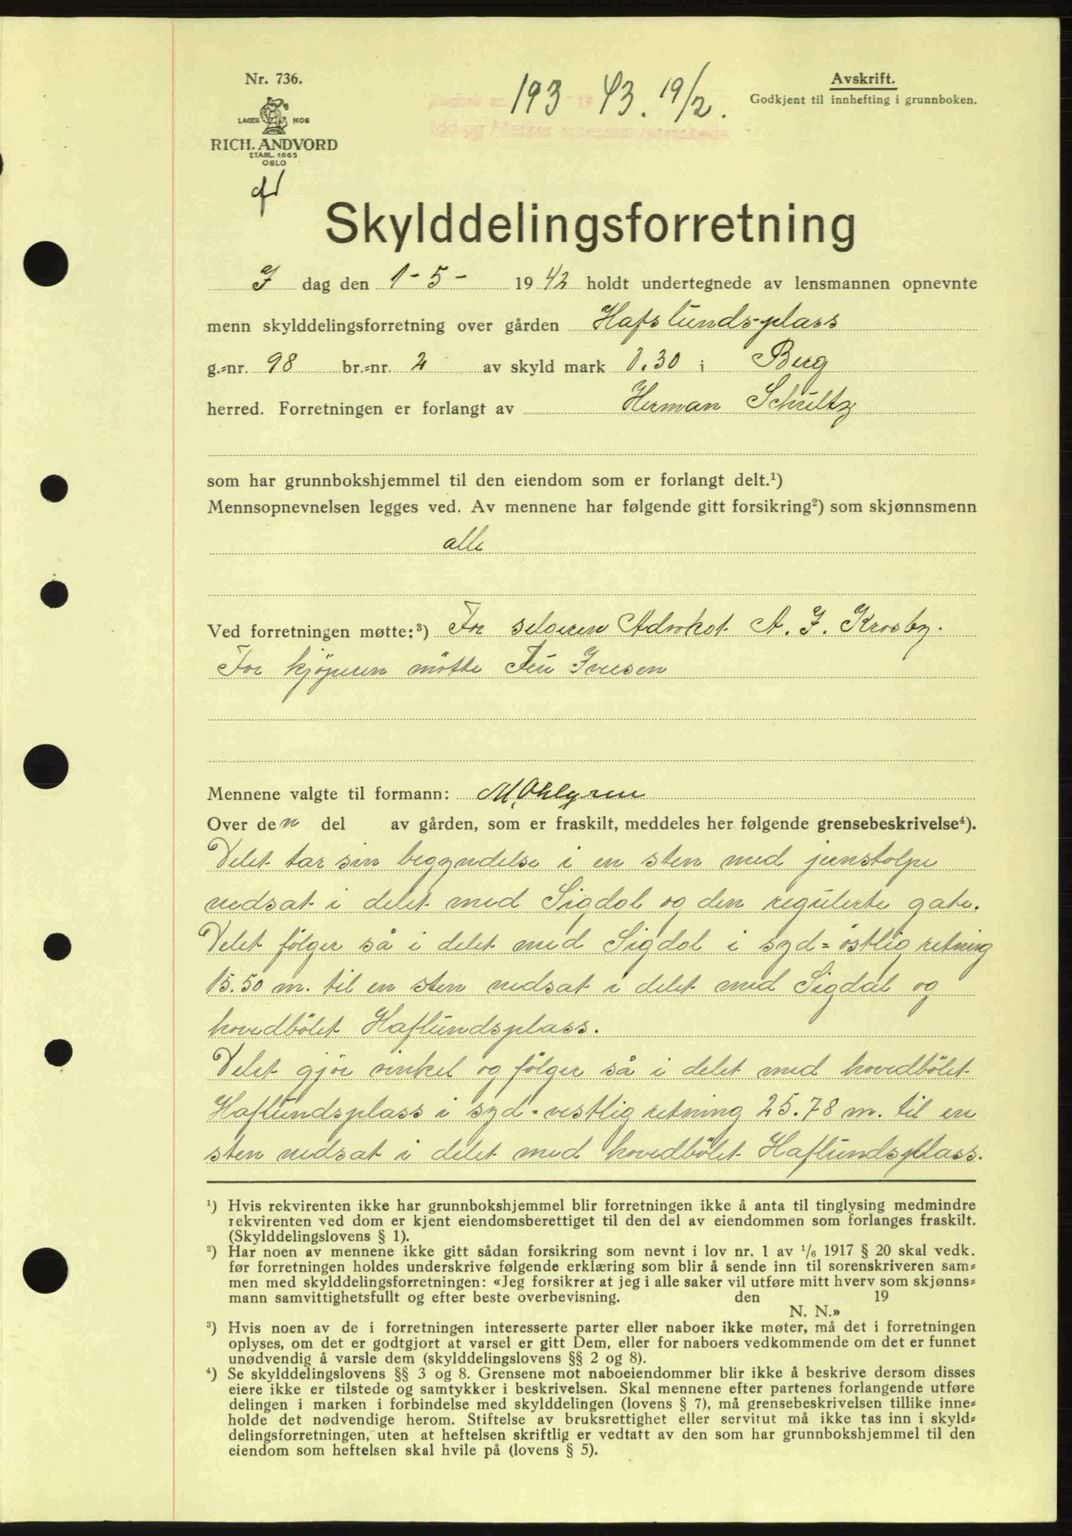 Nr. 736.
LAGER HOS
RICH. ANDVORD
ETABL. 1865
OSLO
193 43. 19/2.
Avskrift.
Godkjent til innhefting i grunnboken.
Skylddelingsforretning
I dag den 1-5- 1942 holdt undertegnede av lensmannen opnevnte
menn skylddelingsforretning over gården Hafslunds-plass
g.=nr. 98 br.=nr. 2 av skyld mark 0.30 i Berg
herred. Forretningen er forlangt av Herman Schultz
som har grunnbokshjemmel til den eiendom som er forlangt delt.¹)
Mennsopnevnelsen legges ved. Av mennene har følgende gitt forsikring²) som skjønnsmenn
alle
Ved forretningen møtte:³) For selgeren Advokat A. F. Krosby.
For kjøperen møtte Fru Iversen
Mennene valgte til formann: M. Ohlgren
Over den del av gården, som er fraskilt, meddeles her følgende grensebeskrivelse⁴).
Delet tar sin begyndelse i en sten med jernstolpe
nedsat i delet med Sigdal og den regulerte gate.
Delet følger så i delet med Sigdal i syd=östlig retning
15.50 m. til en sten nedsat i delet med Sigdal og
hovedbölet Haflundsplass.
Delet gjör vinkel og fölger så i delet med hovedbölet
Haflundsplass i syd=vestlig retning 25.78 m. til en
sten nedsat i delet med hovedbölet Haflundsplass.
¹) Hvis rekvirenten ikke har grunnbokshjemmel blir forretningen ikke å anta til tinglysing medmindre
rekvirenten ved dom er kjent eiendomsberettiget til den del av eiendommen som forlanges fraskilt.
(Skylddelingslovens § 1).
²) Har noen av mennene ikke gitt sådan forsikring som nevnt i lov nr. 1 av 1/6 1917 § 20 skal vedk.
før forretningen holdes underskrive følgende erklæring som blir å sende inn til sorenskriveren sam=
men med skylddelingsforretningen: «Jeg forsikrer at jeg i alle saker vil utføre mitt hverv som skjønns=
mann samvittighetsfullt og efter beste overbevisning. den 19
N. N.»
³) Hvis noen av de i forretningen interesserte parter eller naboer ikke møter, må det i forretningen
oplyses, om det er godtgjort at varsel er gitt Dem, eller for naboers vedkommende om det er funnet
unødvendig å varsle dem (skylddelingslovens §§ 2 og 8).
⁴) Se skylddelingslovens §§ 3 og 8. Grensene mot naboeiendommer blir ikke å beskrive dersom disses
eiere ikke er tilstede og samtykker i beskrivelsen. Skal mennene efter partenes forlangende utføre
delingen i marken i forbindelse med skylddelingen (lovens § 7), må grensebeskrivelsen tillike inne=
holde det nødvendige herom. Stiftelse av bruksrettighet eller servitut må ikke tas inn i skyld=
delingsforretningen, uten at heftelsen skriftlig er vedtatt av den som har grunnbokshjemmel til den
eiendom som heftelsen skal hvile på (lovens § 5).